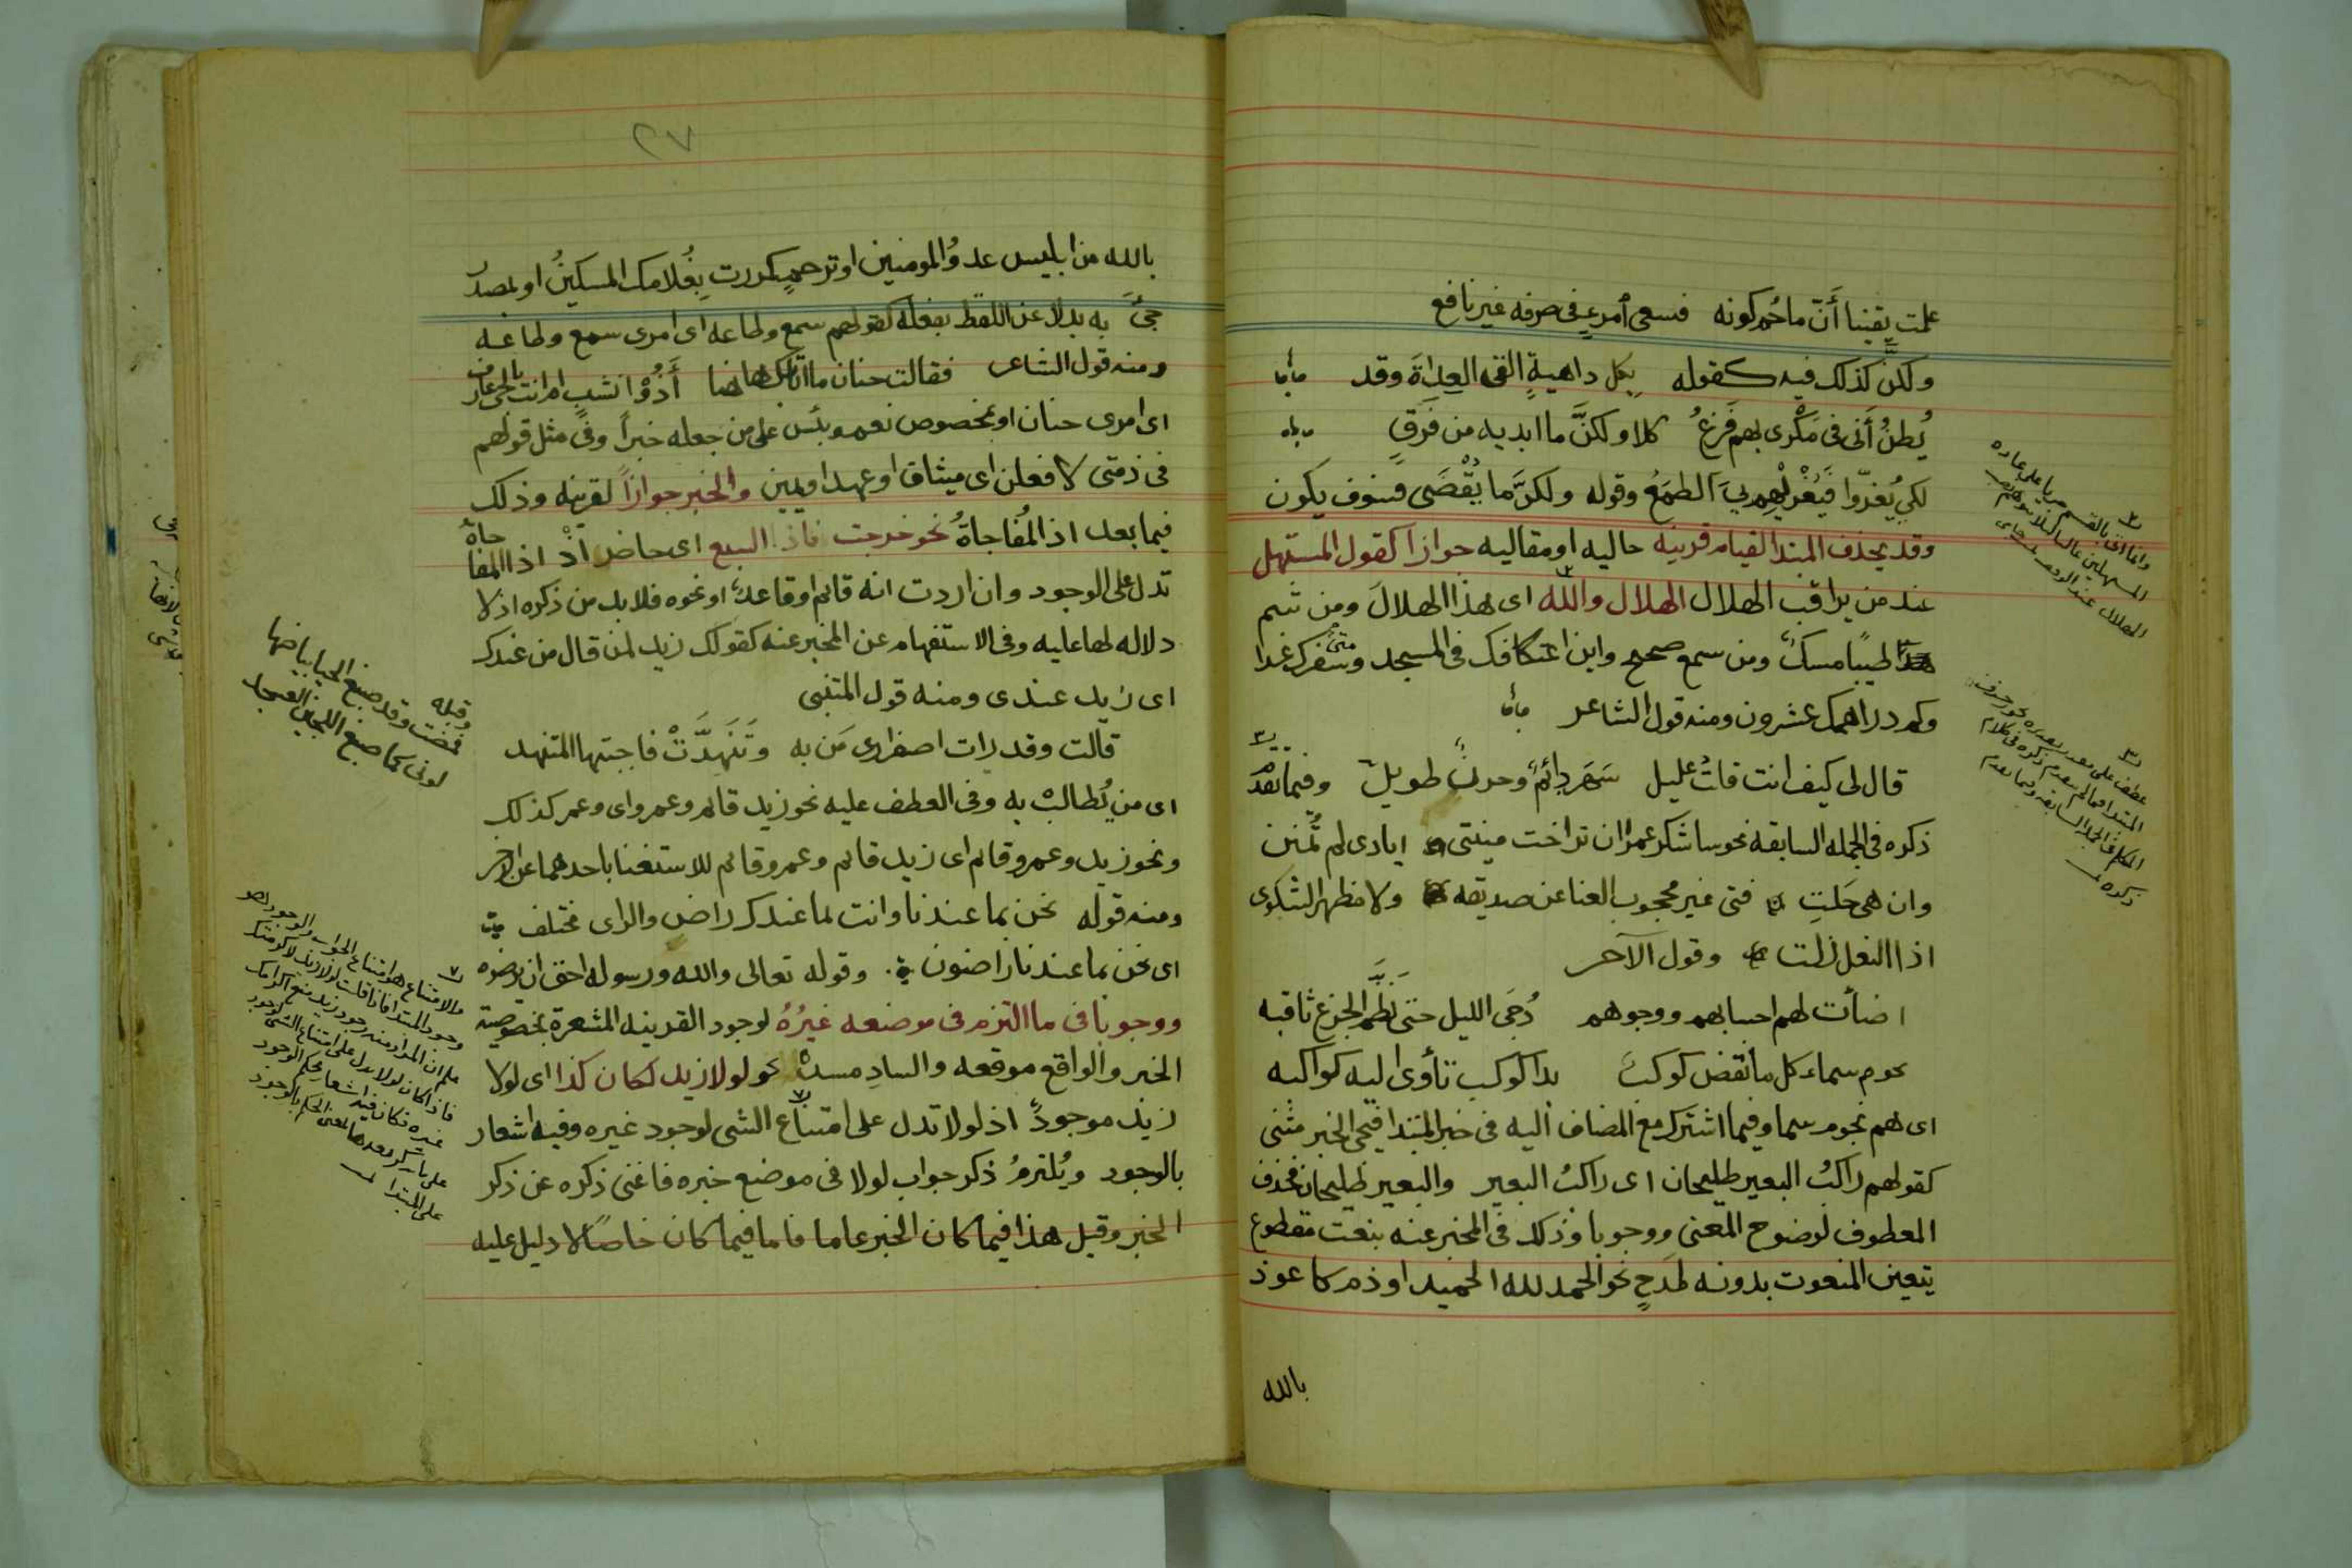 علمت يقينا أنّ ما حُم كونه فسعى أمرءٍ في صرفه غير نافع
ولكنَّ كذلك فيه كقوله بكل داهيةٍ القى العِداةَ وقد
يُظنُّ أنى في مَكْرى بهم فَزِعُ كلا ولكنَّ ما ابديه من فَرَقٍ
لكي يُغَرّوا فيُغْريْهم بيَ الطمَعُ وقوله ولكنَّ ما يُقْضَى فسوف يكون
وقد يحذف المبتدا لقيام قرينه حاليه او مقاليه جوازاً كقول المستهل
عند من يراقب الهلال الهلال والله اى هذا الهلالَ ومن شم
طيبًا مسكٌ ومن سمع صحيح واين اعتكافك في المسجد ومتى سفرك غدا
وكم دراهمك عشرون ومنه قول الشاعر
قال لي كيف انت قلتُ عليل سَهَر دائمٌ وحزنٌ طويل وفيما تقدم
ذكره في الجمله السابقه نحو ساشكر عمرا ان تراخت منيتي ايادى لم تُمنن
وان هي جَلتِ فتى غير محجوب الغنا عن صديقه ولا مظهر الشكوى
اذا النعل زلت وقول الآخر
اضأت لهم احسابهم ووجوهم دُجَى الليل حتى نَظَّمَ الجزع ثاقبه
نجوم سماء كل ما انقض كوكبٌ بدا كوكب تأوى اليه كواكبه
اى هم نجوم سما وفيما اشترك مع المضاف اليه في خبر المبتدا فيجى الخبر مثنى
كقولهم راكبُ البعير طليحان اى راكبُ البعير والبعير طليحان فحذف
المعطوف لوضوح المعنى ووجوبا وذلك في المخبر عنه بنعت مقطوع
يتعين المنعوت بدونه لمَدحٍ نحو الحمد لله الحميد او ذم كاعوذ
بالله
٢
وانما اتى بالقسم جريا على عاده
المستهلين غالبا
الهلال عند
٣
عطف على
المبتدا فيما لم يتقدم ذكره في كلام
السابقه وفيما تقدم
ذكره
٢٧
بالله من ابليس عدوُّ المومنين او ترحمٍ كمررت بِغُلامك المسكينُ او بمصدر
جئَ به بدلا عن اللفظ بفعله كقولهم سمع وطاعه اى امرى سمع وطاعه
ومنه قول الشاعر فقالت حنان ما اتى بك هاهنا أَذُوْا نسَبٍ ام انت بالحي عارف
اى امرى حنان او بمخصوص نعم وبئس على من جعله خبراً وفي مثل قولهم
في ذمتى لافعلن اى ميثاق او عهد او يمين والخبر جوازاً لقرينه وذلك
فيما بعد اذا المُفاجاةُ نحو خرجت فاذا السبع اى حاضر اذْ اذا المفاجاة
تدل على الوجود وان اردت انه قائم او قاعدٌ او نحوه فلابد من ذكره اذ لا
دلاله لها عليه وفي الاستفهام عن المخبر عنه كقولك زيد لمن قال من عندك
اى زيد عندى ومنه قول المتنبى
قالت وقد رات اصفرارى مَن به وتَنَهدَّتْ فاجبتها المتنهد
اى من يُطالبْ به وفي العطف عليه نحو زيد قائم وعمرو اى وعمر كذلك
ونحو زيد وعمرو قائم اى زيد قائم وعمرو قائم للاستغنا باحدهما عن الاخر
ومنه قوله نحن بما عندنا وانت بما عندك راض والراى مختلف
اى نحن بما عندنا راضون . وقوله تعالى والله ورسوله احق ان يرضوه
ووجوبا في ما التزم في موضعه غيرُهُ لوجود القرينه المشعرة بخصوصية
الخبر والواقع موقعه والسادِ مسدهْ نحو لولا زيد لكان كذا اى لولا
زيد موجودٌ اذ لولا تدل على امتناع الشى لوجود غيره وفيه اشعار
بالوجود ويُلتزمُ ذكر جواب لولا في موضع خبره فاغنى ذكره عن ذكر
الخبر وقيل هذا فيما كان الخبر عاما فاما فيما كان خاصًا لا دليل عليه
وقبله
فمضت وقد صبغ الحيا بياضها
لونى كما صبغ اللجين العسجد
٧
والامتناع هو امتناع الجواب والوجود هو
وجود المبتدا فاذا قلت لولا زيد لاكرمتك
علم ان المراد منه وجود زيد منع اكرامك
فاذا كان لولا يدل على امتناع الشى لوجود
غيره فكان فيه اشعار بحكم الوجود
على
على المبتدا